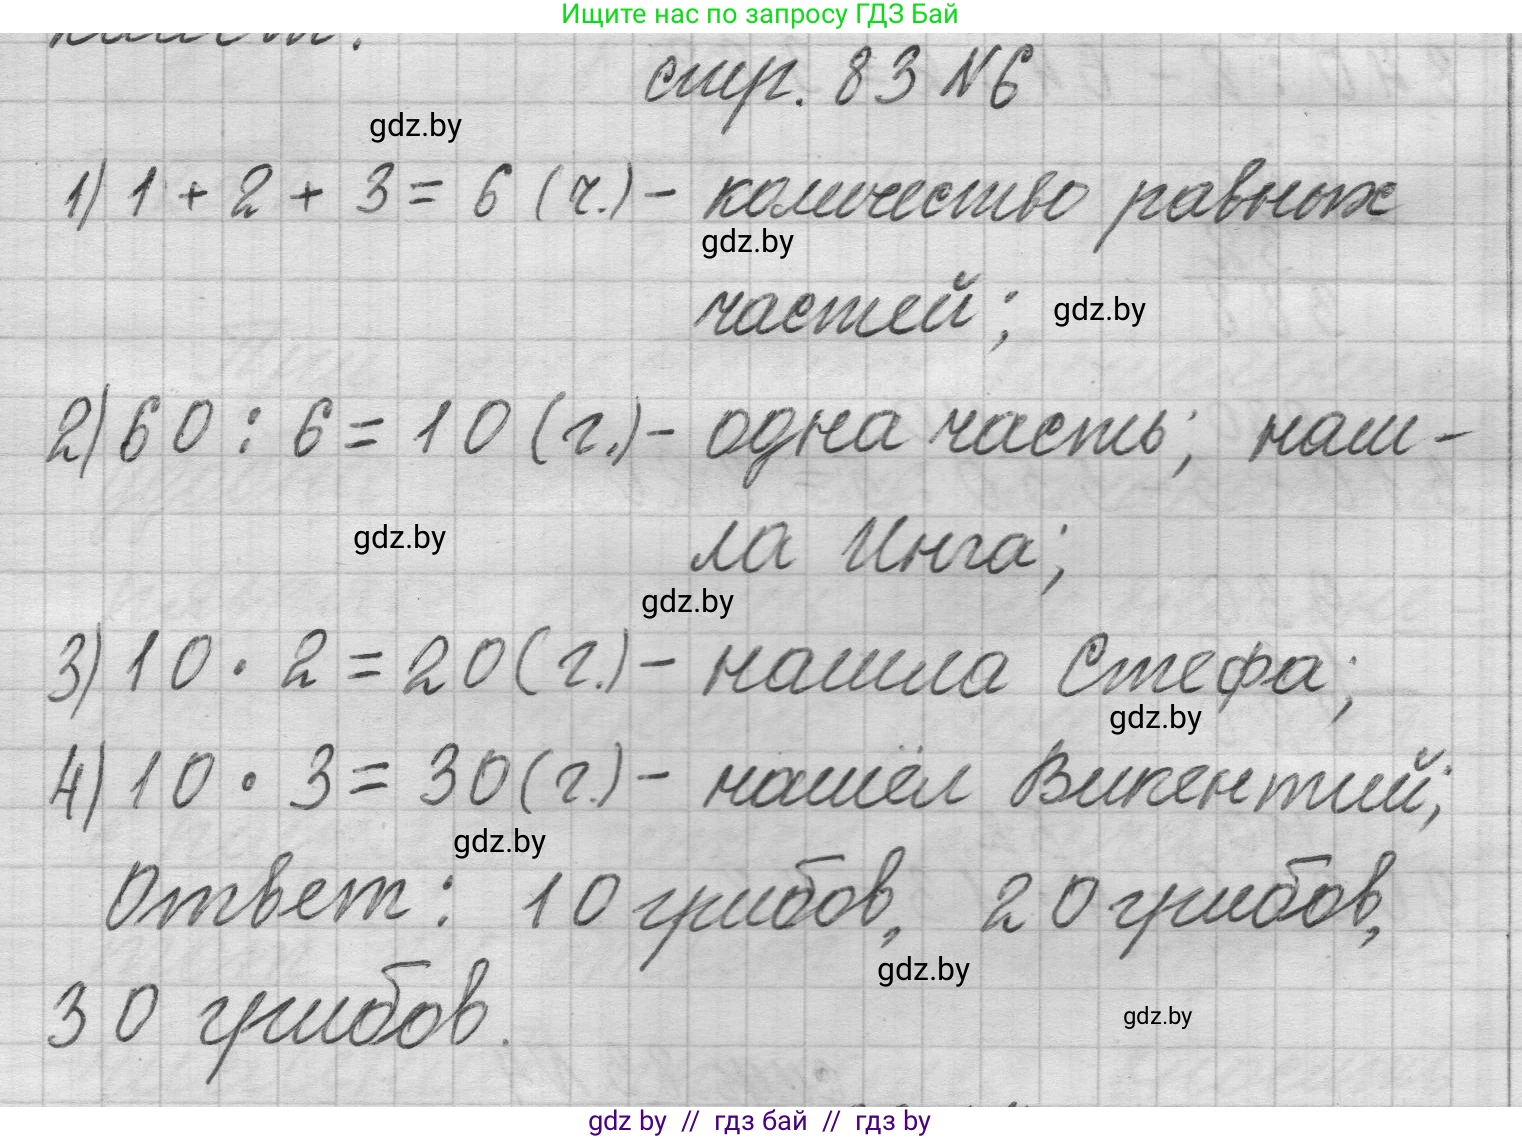 Ищите нас по запросу ГДЗ Бай
стр. 83 №6
gdz.by
1) 1 + 2 + 3 = 6 (ч.) - количество равных
gdz.by
частей; gdz.by
2) 60 : 6 = 10 (г.) - одна часть; наш-
gdz.by
ла Инга;
gdz.by
3) 10 · 2 = 20 (г.) - нашла Стефа;
gdz.by
4) 10 · 3 = 30 (г.) - нашёл Викентий;
gdz.by
Ответ: 10 грибов, 20 грибов,
gdz.by
30 грибов.
gdz.by
gdz by // гдз бай // гдз by